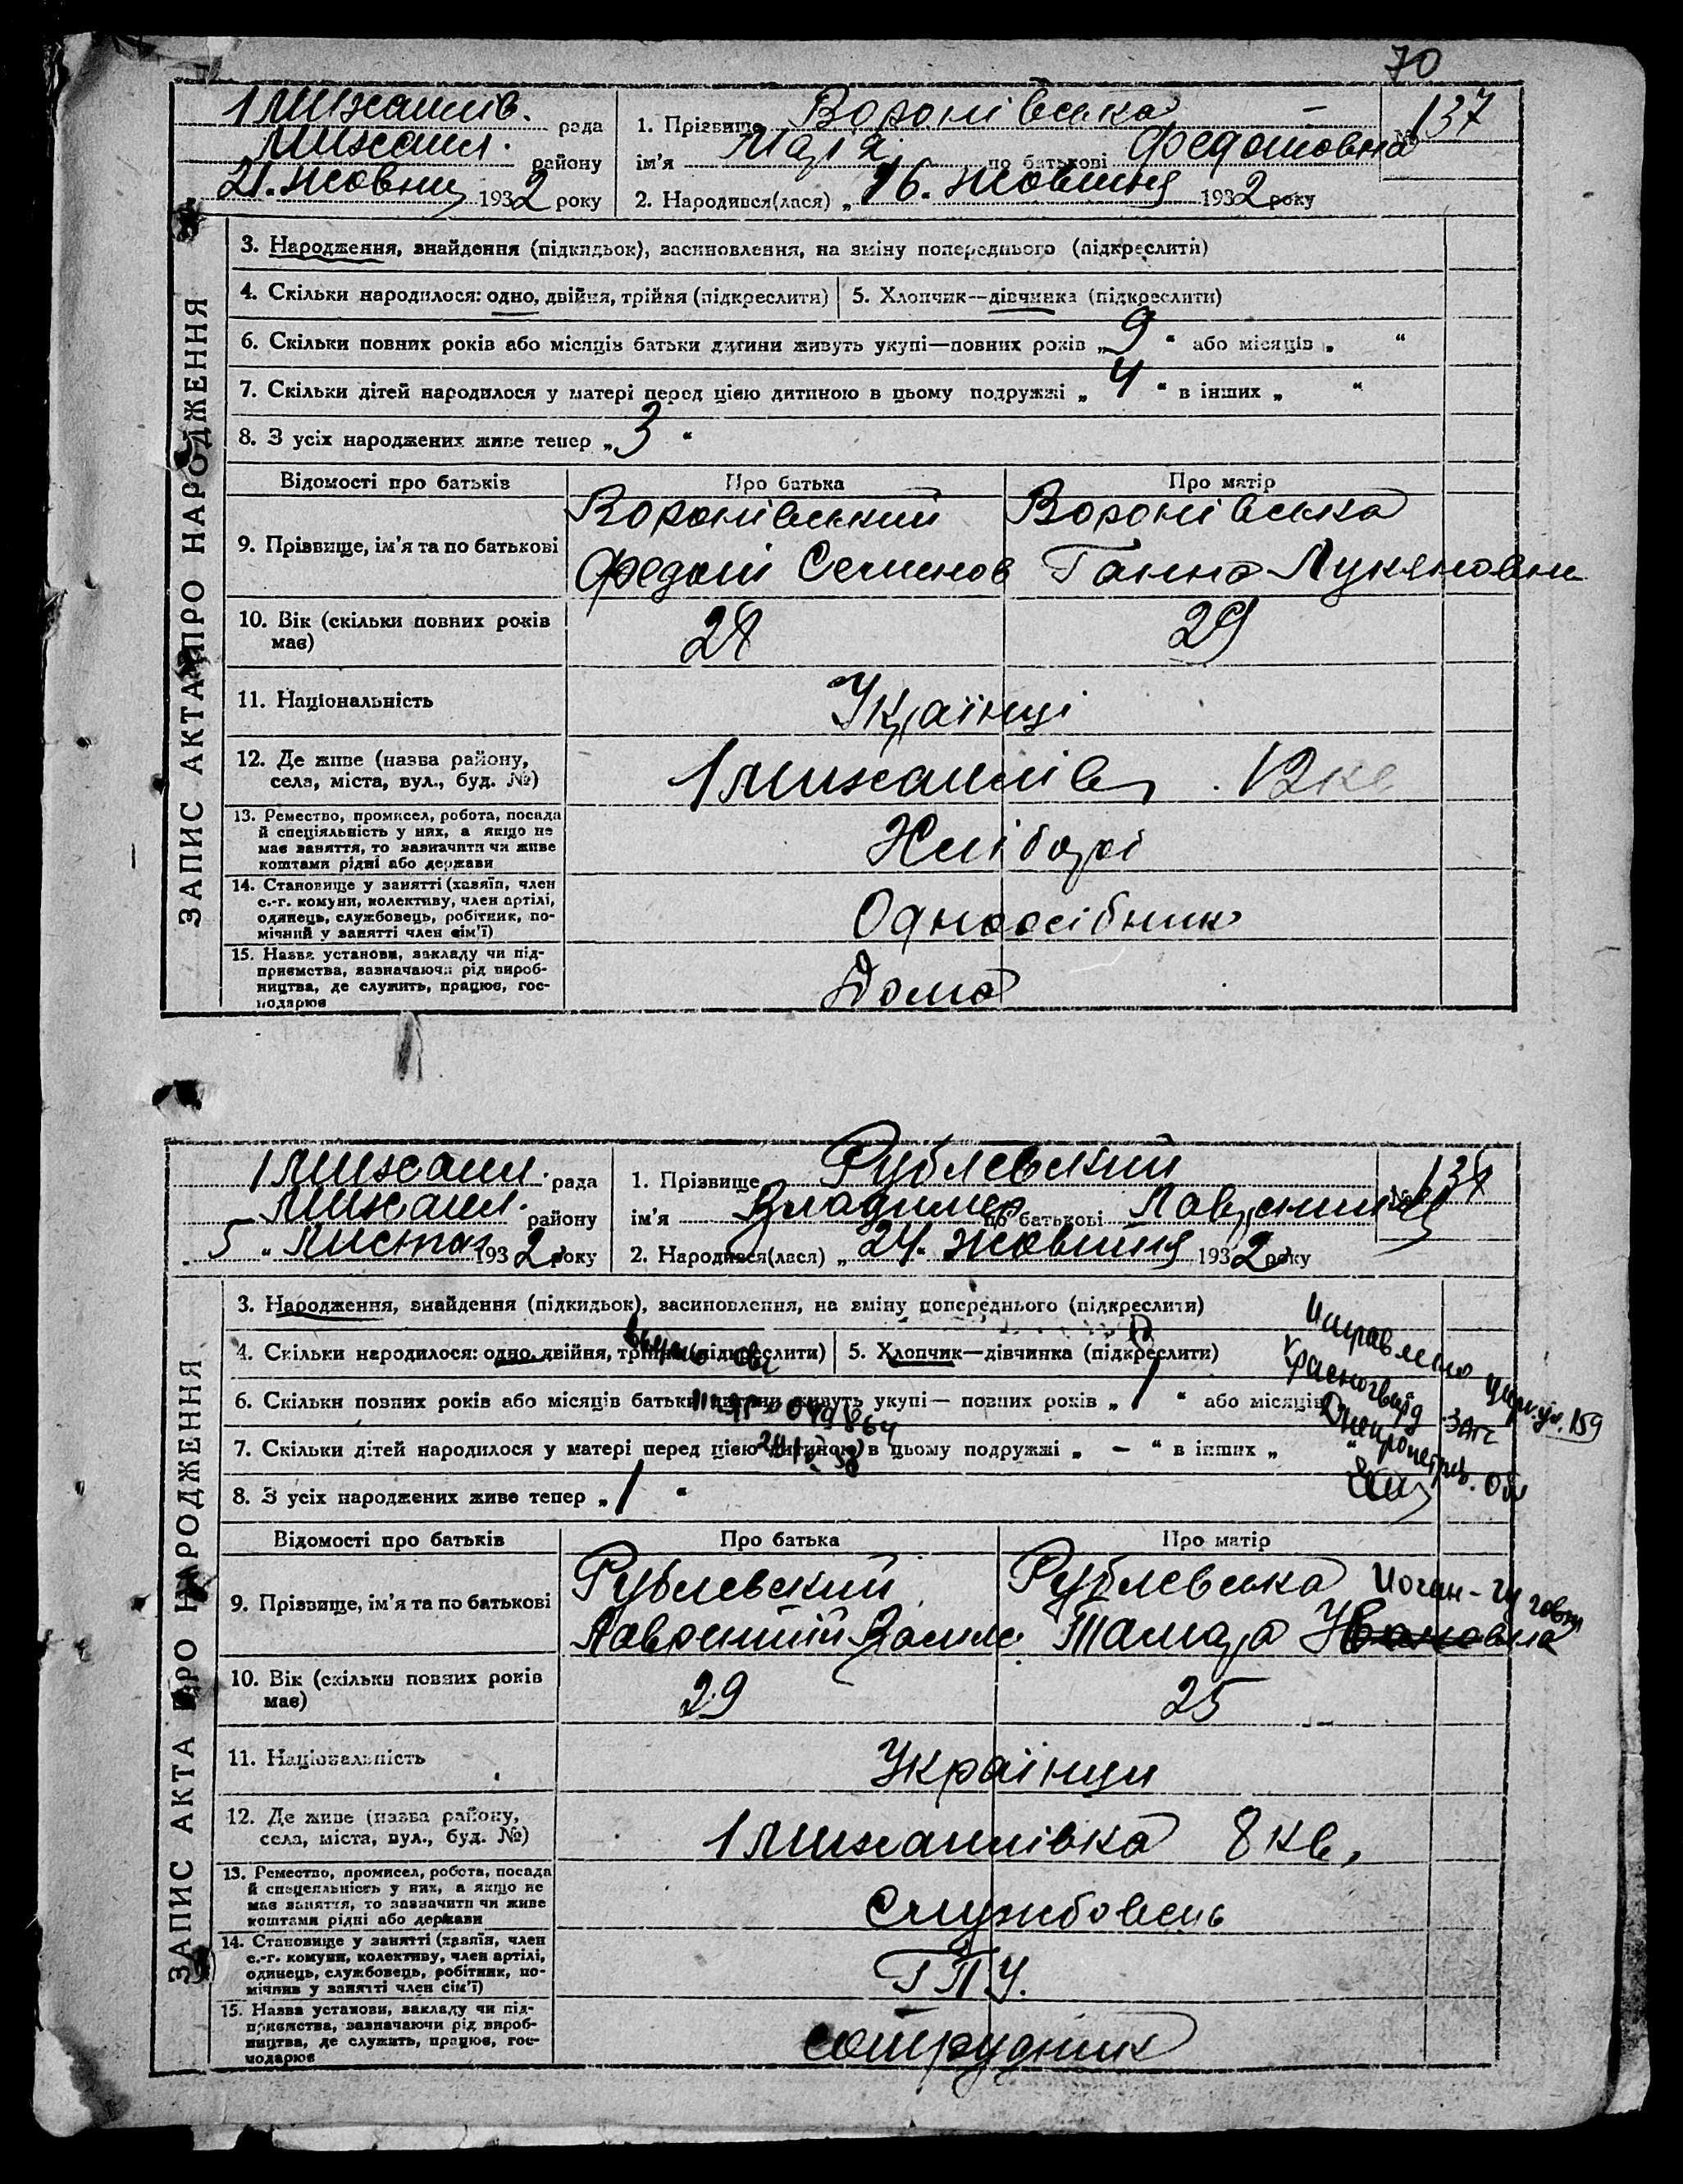 70
1 Михайлів. рада
Михайл. району
21. Жовтня 1932 року
1. Прізвище Воронівська
ім'я Марія по батькові Федотовна
2. Народився(лася) „16. Жовтня 1932 року
№ 137
ЗАПИС АКТА ПРО НАРОДЖЕННЯ
3. Народження, знайдення (підкидьок), засиновлення, на зміну попереднього (підкреслити)
4. Скільки народилося: одно, двійня, трійня (підкреслити) 5. Хлопчик—дівчинка (підкреслити)
6. Скільки повних років або місяців батьки дитини живуть укупі—повних років „9“ або місяців „ “
7. Скільки дітей народилося у матері перед цією дитиною в цьому подружжі „4“ в інших „ “
8. З усіх народжених живе тепер „3“
Відомості про батьків Про батька Про матір
9. Прізвище, ім'я та по батькові
Воронівський Воронівська
Федот Семенов Ганна Лукяновна
10. Вік (скільки повних років
має)
28 29
11. Національність Українці
12. Де живе (назва району,
села, міста, вул., буд. №)
1 Михайлів 12 кв
13. Ремество, промисел, робота, посада
й спеціяльність у них, а якщо не
має заняття, то зазначити чи живе
коштами рідні або держави
Хлібороб
14. Становище у занятті (хазяїн, член
с.-г. комуни, колективу, член артілі,
одинець, службовець, робітник, по-
мічний у занятті член сім'ї)
Одноосібник
15. Назва установи, закладу чи під-
приємства, зазначаючи рід вироб-
ництва, де служить, працює, гос-
подарює
Дома
1 Михайл. рада
Михайл. району
5 „ Листоп 1932 року
1. Прізвище Рублевский
ім'я Владимир по батькові
2. Народився(лася) „24. Жовтня 1932 року
№ 138
ЗАПИС АКТА ПРО НАРОДЖЕННЯ
3. Народження, знайдення (підкидьок), засиновлення, на зміну попереднього (підкреслити)
4. Скільки народилося: одно, двійня, трійня (підкреслити) 5. Хлопчик—дівчинка (підкреслити)
6. Скільки повних років або місяців батьки дитини живуть укупі— повних років „1“ або місяців
7. Скільки дітей народилося у матері перед цією дитиною в цьому подружжі „ — “ в інших „ “
8. З усіх народжених живе тепер „1“
049864
Исправлено
Красногвард ЗАГС
Днепропетров. Обл
Відомості про батьків Про батька Про матір
9. Прізвище, ім'я та по батькові
Рублевский Рублевська
Лаврентий Тамара Ивановна
10. Вік (скільки повних років
має)
29 25
11. Національність Українци
12. Де живе (назва району,
села, міста, вул., буд. №)
1 Михайлівка 8 кв.
13. Ремество, промисел, робота, посада
й спеціяльність у них, а якщо не
має заняття, то зазначити чи живе
коштами рідні або держави
Службовець
14. Становище у занятті (хазяїн, член
с.-г. комуни, колективу, член артілі,
одинець, службовець, робітник, по-
мічник у занятті член сім'ї)
ГПУ.
15. Назва установи, закладу чи під-
приємства, зазначаючи рід вироб-
ництва, де служить, працює, гос-
подарює
сотрудник